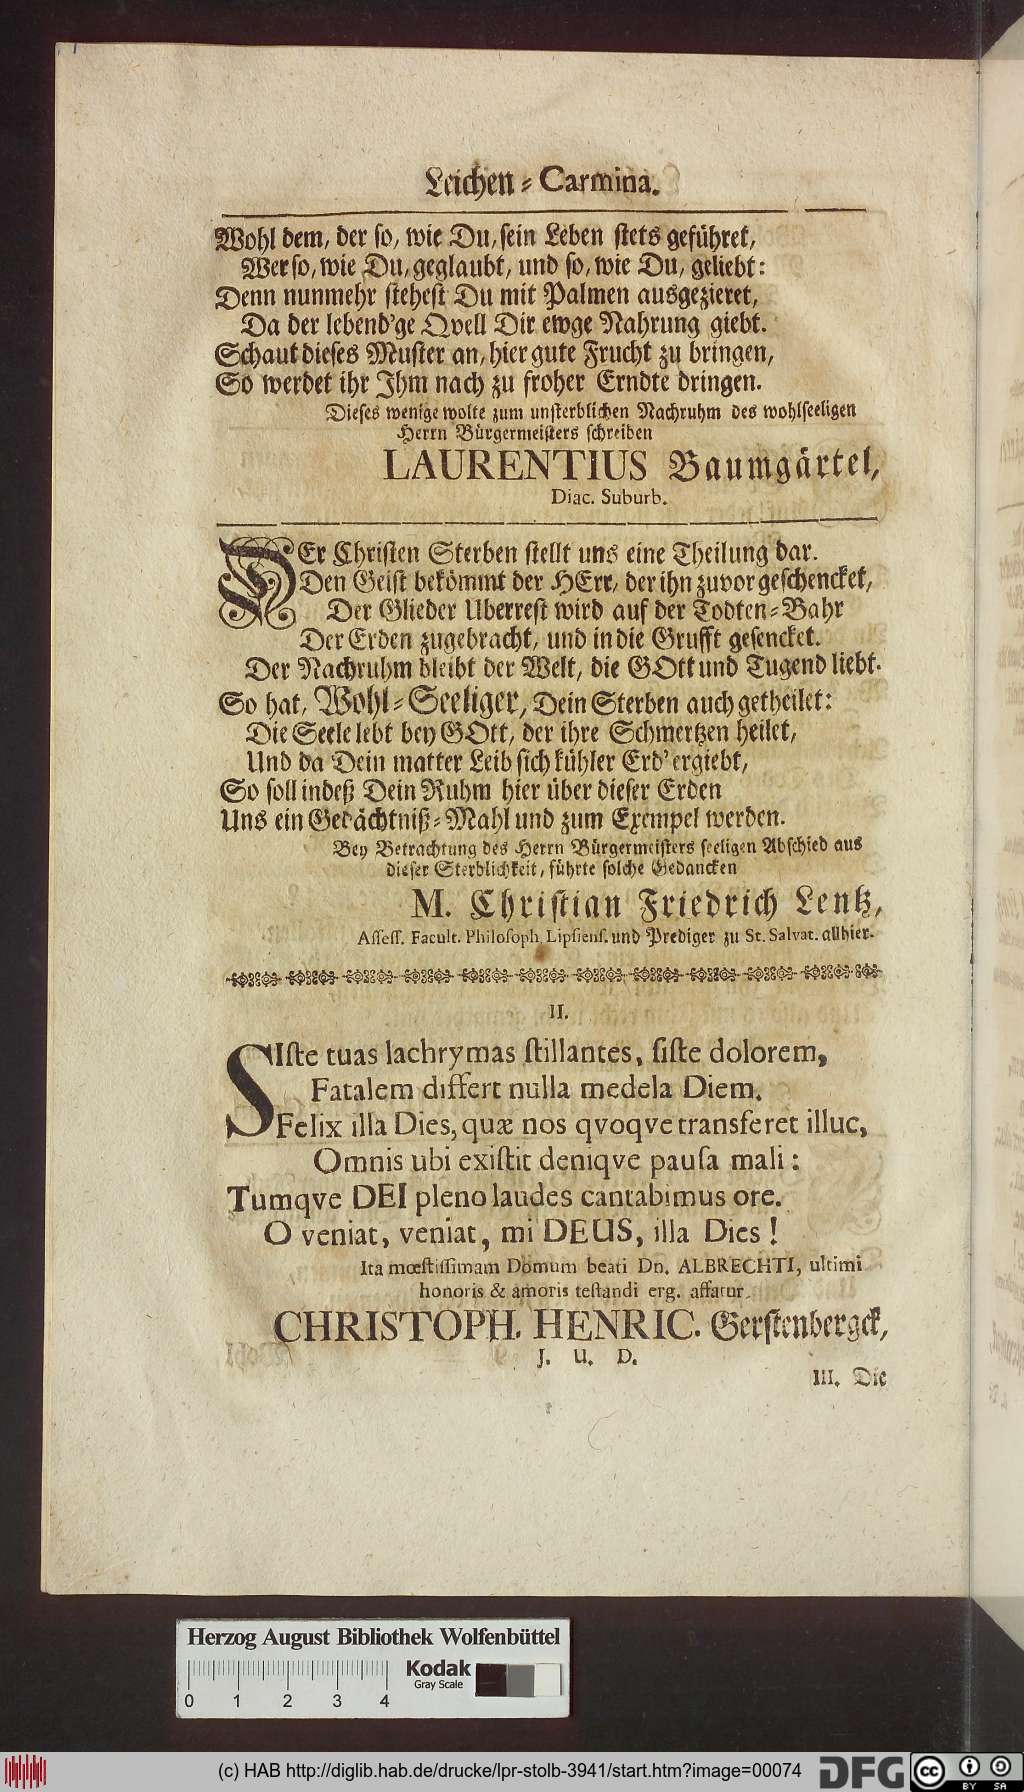 Leichen-Carmina.
Wohl dem, der so, wie Du, sein Leben stets geführet,
Wer so, wie Du, geglaubt, und so, wie Du, geliebt:
Denn nunmehr stehest Du mit Palmen ausgezieret,
Da der lebend'ge Qvell Dir ewge Nahrung giebt.
Schaut dieses Muster an, hier gute Frucht zu bringen,
So werdet ihr Jhm nach zu froher Erndte dringen.
Dieses wenige wolte zum unsterblichen Nachruhm des wohlseeligen
Herrn Bürgermeisters schreiben
LAURENTIUS Baumgärtel,
Diac. Suburb.
DEr Christen Sterben stellt uns eine Theilung dar.
Den Geist bekömmt der HErr, der ihn zuvor geschencket,
Der Glieder Uberrest wird auf der Todten-Bahr
Der Erden zugebracht, und in die Grufft gesencket.
Der Nachruhm bleibt der Welt, die GOtt und Tugend liebt.
So hat, Wohl-Seeliger, Dein Sterben auch getheilet:
Die Seele lebt bey GOtt, der ihre Schmertzen heilet,
Und da Dein matter Leib sich kühler Erd' ergiebt,
So soll indeß Dein Ruhm hier über dieser Erden
Uns ein Gedächtniß-Mahl und zum Exempel werden.
Bey Betrachtung des Herrn Bürgermeisters seeligen Abschied aus
dieser Sterblichkeit, führte solche Gedancken
M. Christian Friedrich Lentz,
Assess. Facult. Philosoph. Lipsiens. und Prediger zu St. Salvat. allhier.
II.
SIste tuas lachrymas stillantes, siste dolorem,
Fatalem differt nulla medela Diem.
Felix illa Dies, quæ nos qvoqve transferet illuc,
Omnis ubi existit deniqve pausa mali:
Tumqve DEI pleno laudes cantabimus ore.
O veniat, veniat, mi DEUS, illa Dies!
Ita mœstissimam Domum beati Dn. ALBRECHTI, ultimi
honoris & amoris testandi erg. affatur
CHRISTOPH. HENRIC. Gerstenbergck,
J. U. D.
III. Die
Herzog August Bibliothek Wolfenbüttel
Kodak
Gray Scale
0 1 2 3 4
(c) HAB http://diglib.hab.de/drucke/lpr-stolb-3941/start.htm?image=00074
DFG
cc
BY SA